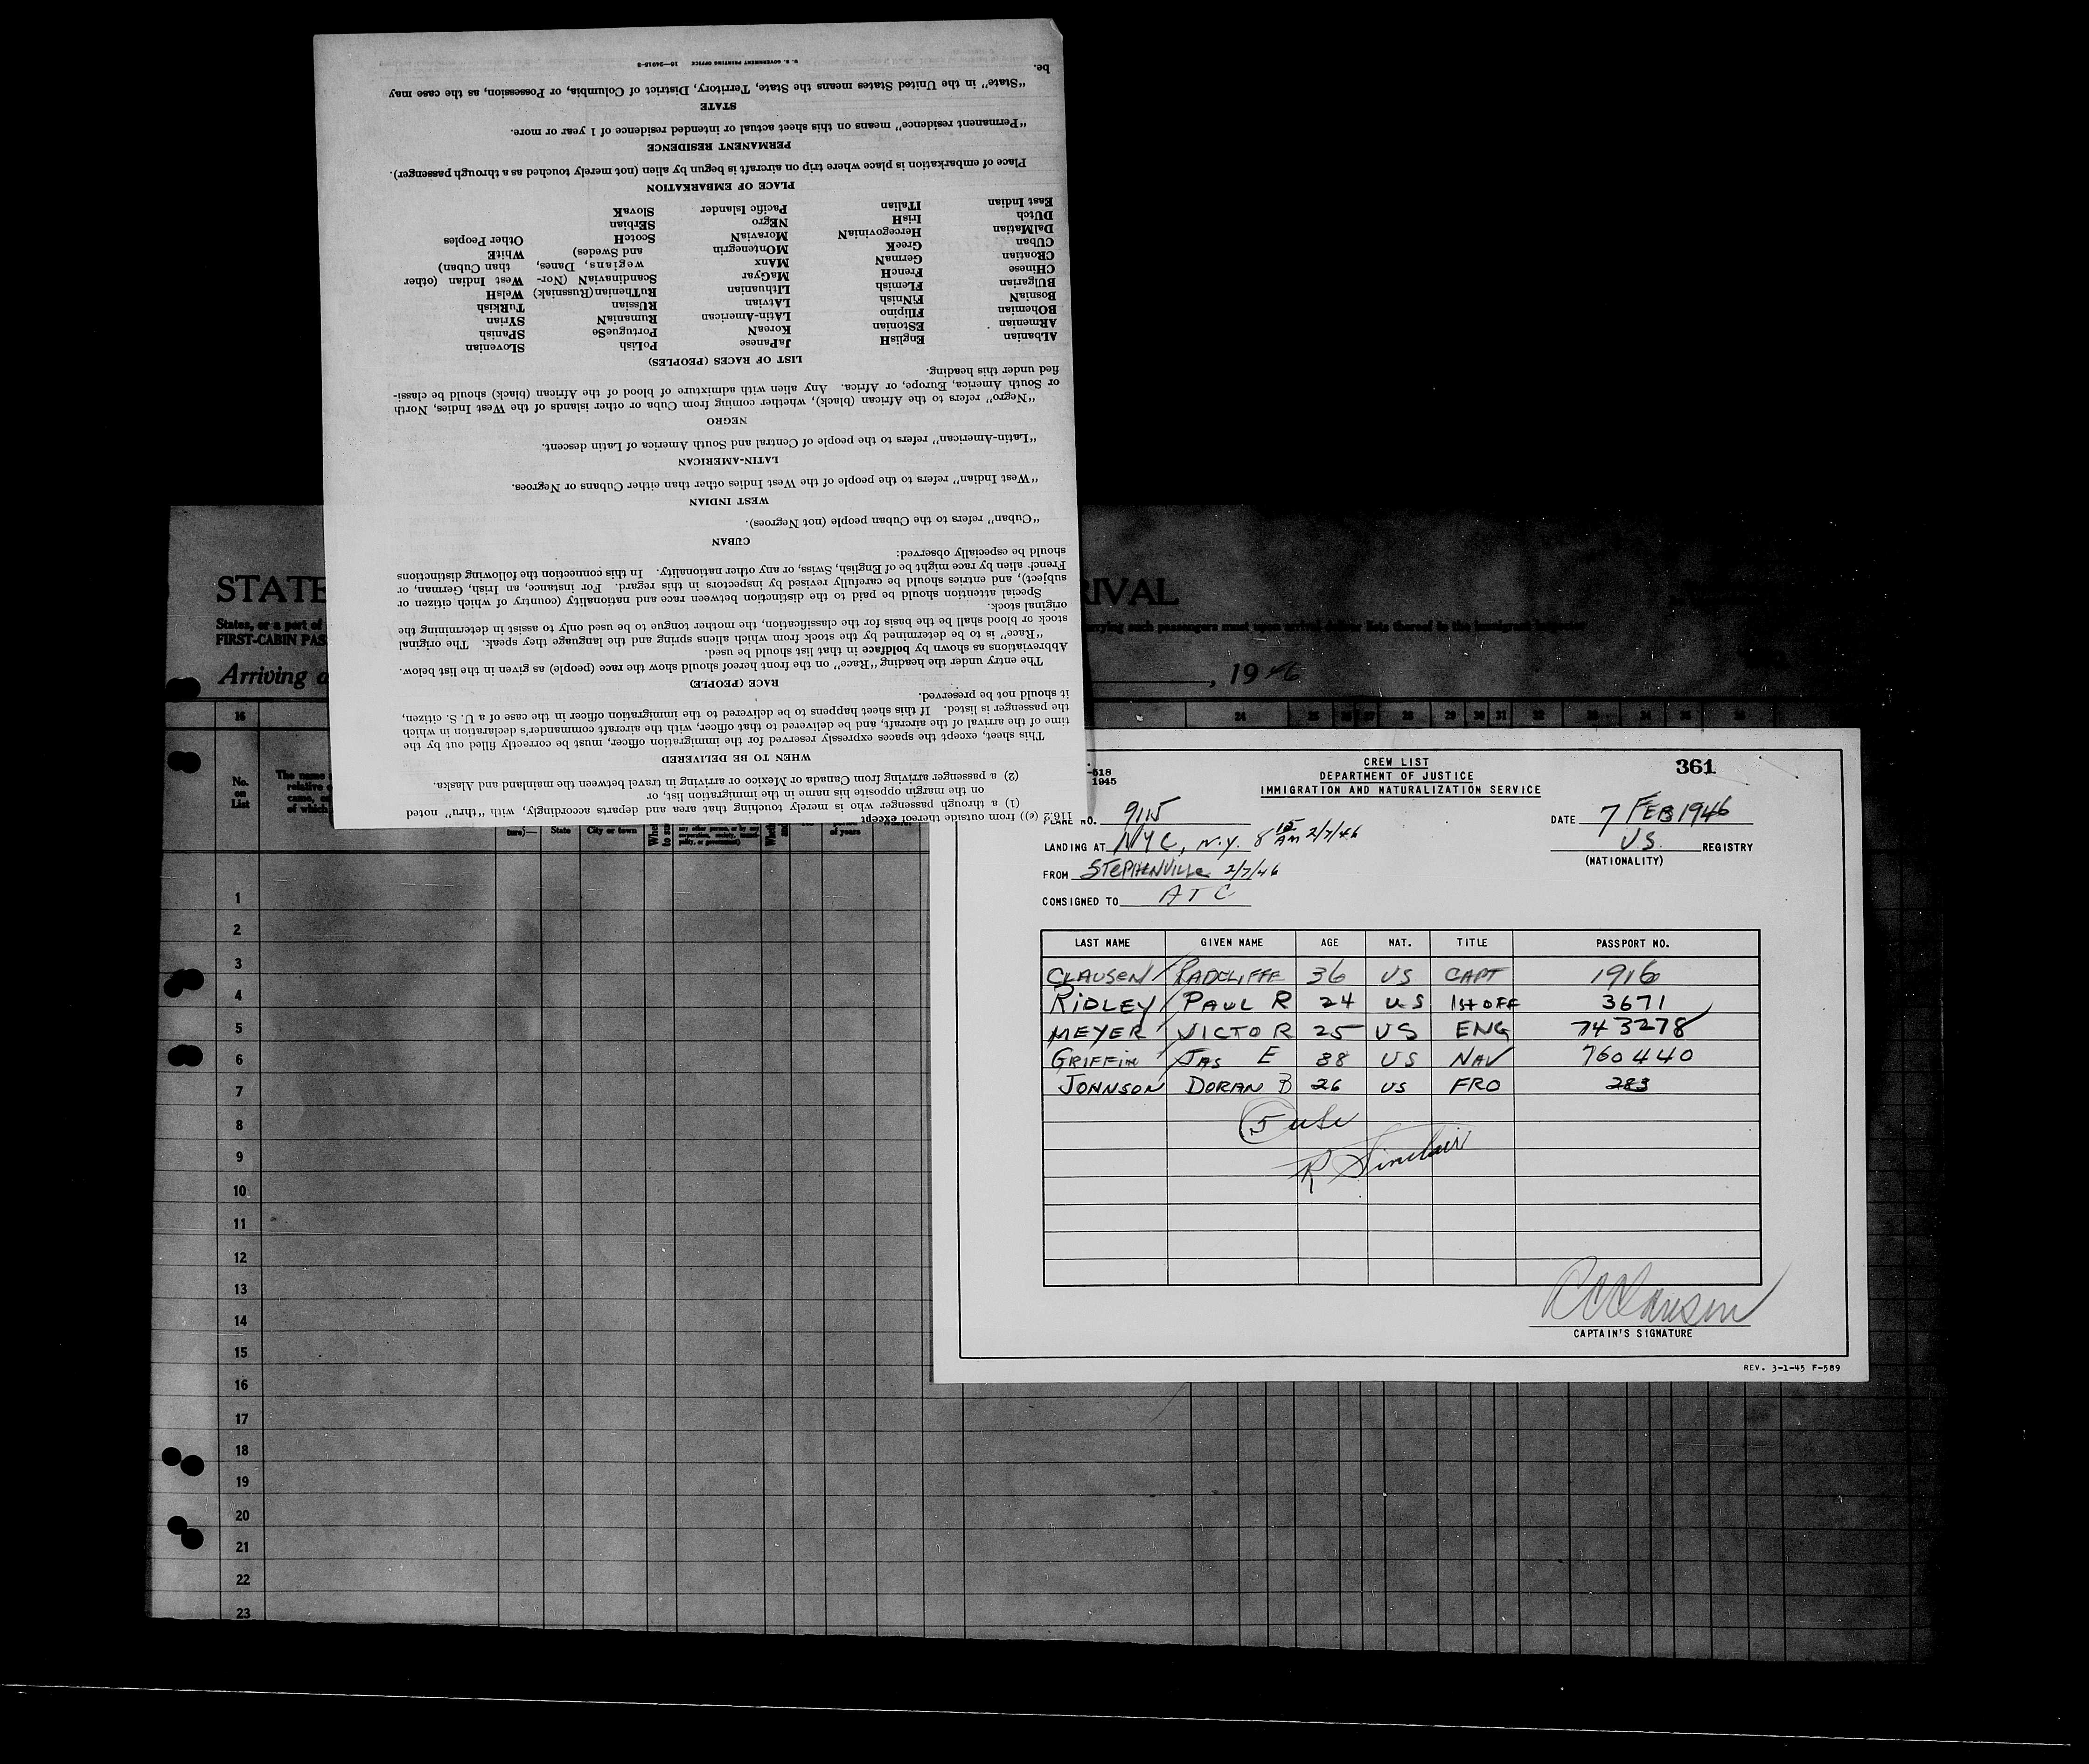 116.2 (e)) from outside thereof except
(1) a through passenger who is merely touching that area and departs accordingly, with "thru" noted
on the margin opposite his name in the immigration list, or
(2) a passenger arriving from Canada or Mexico or arriving in travel between the mainland and Alaska.
WHEN TO BE DELIVERED
This sheet, except the spaces expressly reserved for the immigration officer, must be correctly filled out by the
time of the arrival of the aircraft, and be delivered to that officer, with the aircraft commander's declaration in which
the passenger is listed. If this sheet happens to be delivered to the immigration officer in the case of a U. S. citizen,
it should not be preserved.
RACE (PEOPLE)
The entry under the heading "Race" on the front hereof should show the race (people) as given in the list below.
Abbreviations as shown by boldface in that list should be used.
"Race" is to be determined by the stock from which aliens spring and the language they speak. The original
stock or blood shall be the basis for the classification, the mother tongue to be used only to assist in determining the
original stock.
Special attention should be paid to the distinction between race and nationality (country of which citizen or
subject), and entries should be carefully revised by inspectors in this regard. For instance, an Irish, German, or
French alien by race might be of English, Swiss, or any other nationality. In this connection the following distinctions
should be especially observed:
CUBAN
"Cuban" refers to the Cuban people (not Negroes).
WEST INDIAN
"West Indian" refers to the people of the West Indies other than either Cubans or Negroes.
LATIN-AMERICAN
"Latin-American" refers to the people of Central and South America of Latin descent.
NEGRO
"Negro" refers to the African (black), whether coming from Cuba or other islands of the West Indies, North
or South America, Europe, or Africa. Any alien with admixture of blood of the African (black) should be classi-
fied under this heading.
LIST OF RACES (PEOPLES)
ALbanian EnglisH JaPanese PoLish SLovenian
ARmenian EStonian KoreaN PortugueSe SPanish
BOhemian FIlipino LAtin-American RumaniaN SYrian
BosniaN FiNnish LAtvian RUssian TuRkish
BUlgarian FLemish LIthuanian RuThenian (Russniak) WelsH
CHinese FrencH MaGyar ScandinaviaN (Nor- West Indian (other
CRoatian GermaN MAnx wegians, Danes, than Cuban)
CUban GreeK MOntenegrin and Swedes) WhitE
DalMatian HercegoviniaN MoraviaN ScotcH Other Peoples
DUtch IrisH NEgro SErbian
East Indian ITalian Pacific Islander SlovaK
PLACE OF EMBARKATION
Place of embarkation is place where trip on aircraft is begun by alien (not merely touched as a through passenger).
PERMANENT RESIDENCE
"Permanent residence" means on this sheet actual or intended residence of 1 year or more.
STATE
"State" in the United States means the State, Territory, District of Columbia, or Possession, as the case may
be.
U. S. GOVERNMENT PRINTING OFFICE 16—24915-2
STATE RIVAL
States, or a part of
FIRST-CABIN PAS
Arriving , 19 46
16 24 25 28 29 30 31 32 33 34 35 36
No.
on
List
The name
relative
of which
ture)— State City or town of years
1
2
3
4
5
6
7
8
9
10
11
12
13
14
15
16
17
18
19
20
21
22
23
-518
1945
CREW LIST
DEPARTMENT OF JUSTICE
IMMIGRATION AND NATURALIZATION SERVICE
361
PLANE NO. 9115
DATE 7 FEB 1946
LANDING AT NYC, N.Y. 8 15 AM 2/7/46
U.S. REGISTRY
(NATIONALITY)
FROM STEPHENVILLE 2/7/46
CONSIGNED TO ATC
LAST NAME GIVEN NAME AGE NAT. TITLE PASSPORT NO.
CLAUSEN RADCLIFFE 36 US CAPT 1916
RIDLEY PAUL R 24 US 1st OFF 3671
MEYER VICTOR 25 US ENG 743278
GRIFFIN JAS E 38 US NAV 760440
JOHNSON DORAN B 26 US FRO 283
5 USC
R Sinclair
R C Clausen
CAPTAIN'S SIGNATURE
REV. 3-1-45 F-589